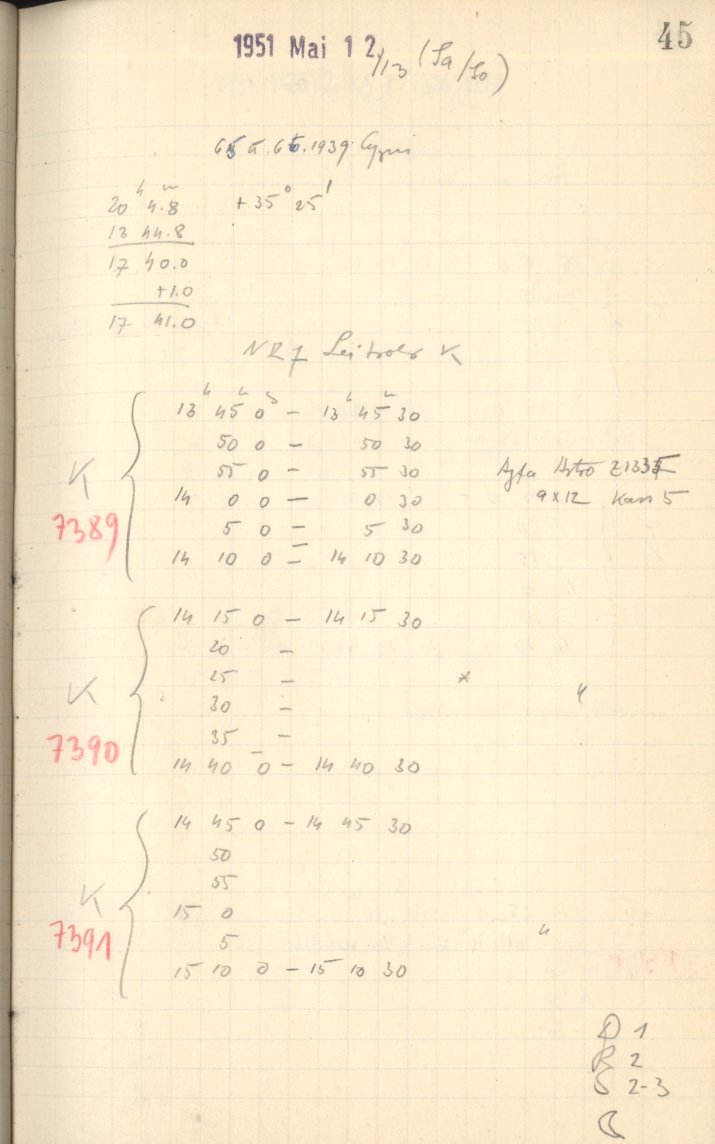 45
1951 Mai 12/13 (Sa/So)
1939 Cygni
20h 4m.8 +35° 25'
13 44.8
17 40.0
+1.0
17 41.0
NR 7 K
13h 45m 0s – 13h 45m 30
50 0 – 50 30
55 0 – 55 30
14 0 0 – 0 30
5 0 – 5 30
14 10 0 – 14 10 30
K
7389
Agfa Astro
9x12 Kass 5
14 15 0 – 14 15 30
20 –
25 –
30 –
35 –
14 40 0 – 14 40 30
K
7390
14 45 0 – 14 45 30
50
55
15 0
5
15 10 0 – 15 10 30
K
7391
"
D 1
R 2
S 2-3
☾